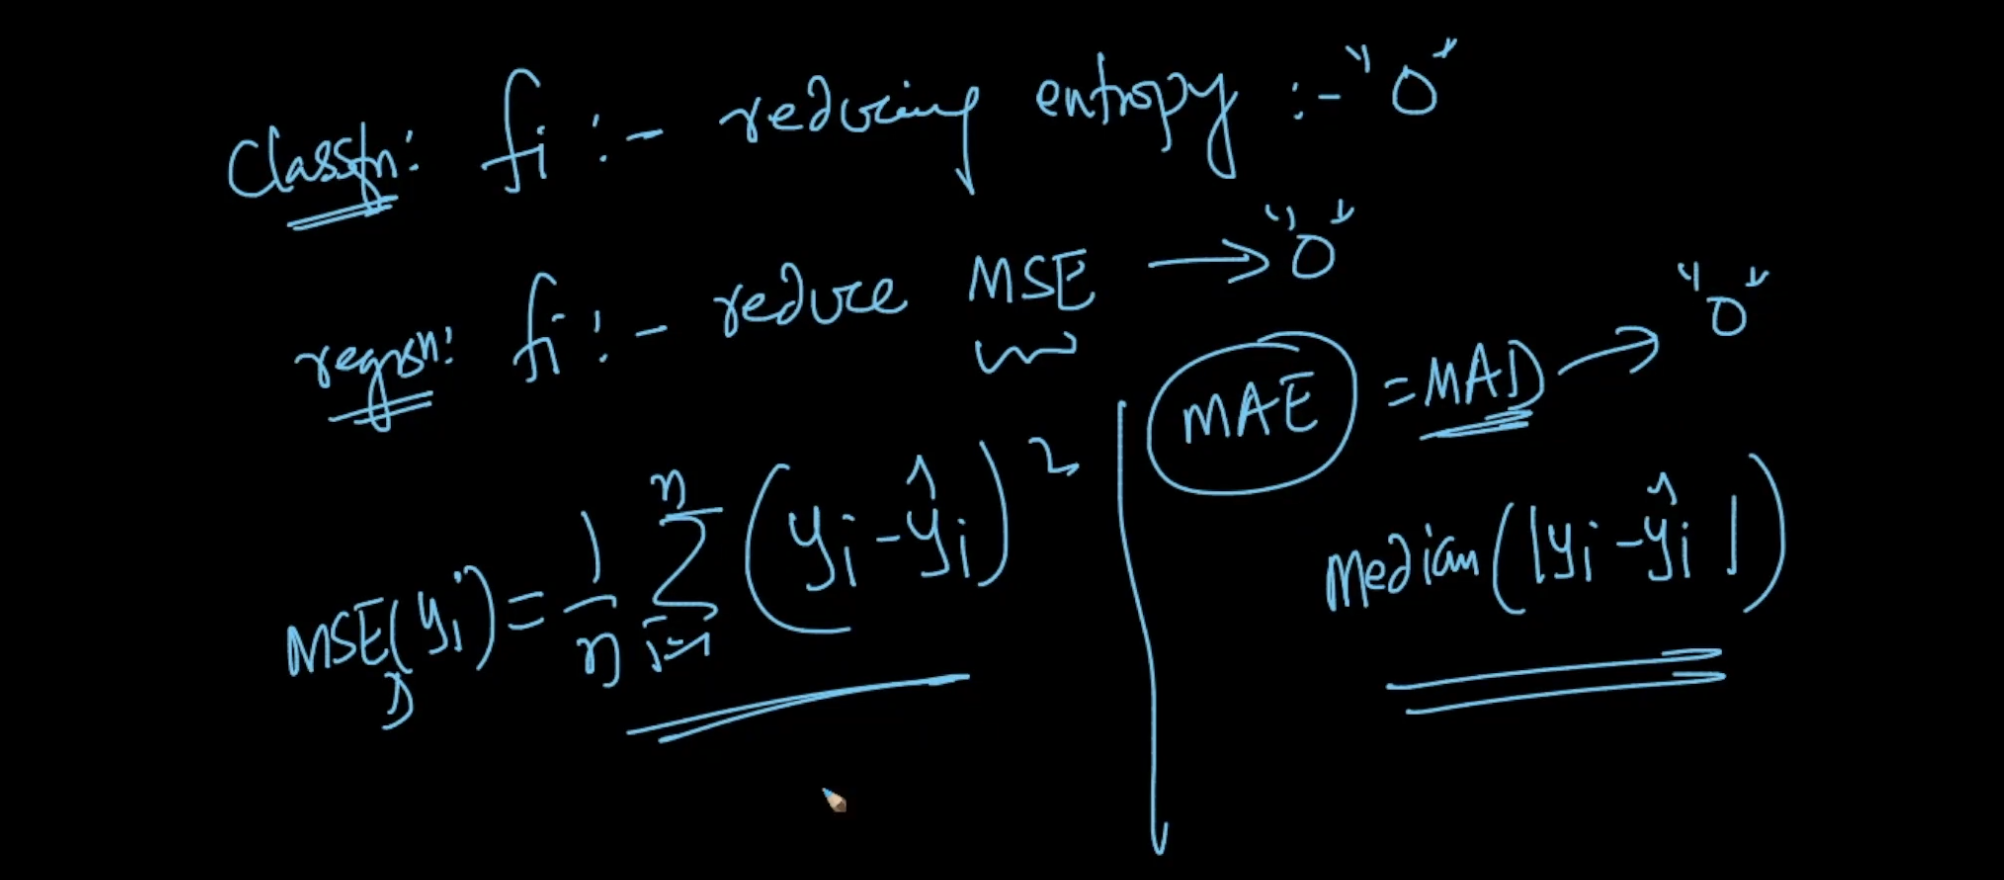 Classfn: fi :- reducing entropy :- "0"
regrsn: fi :- reduce MSE → "0"
MAE = MAD → "0"
MSE_D(yi) = 1/n n∑i=1 (yi - ŷi)²
Median(|yi - ŷi|)